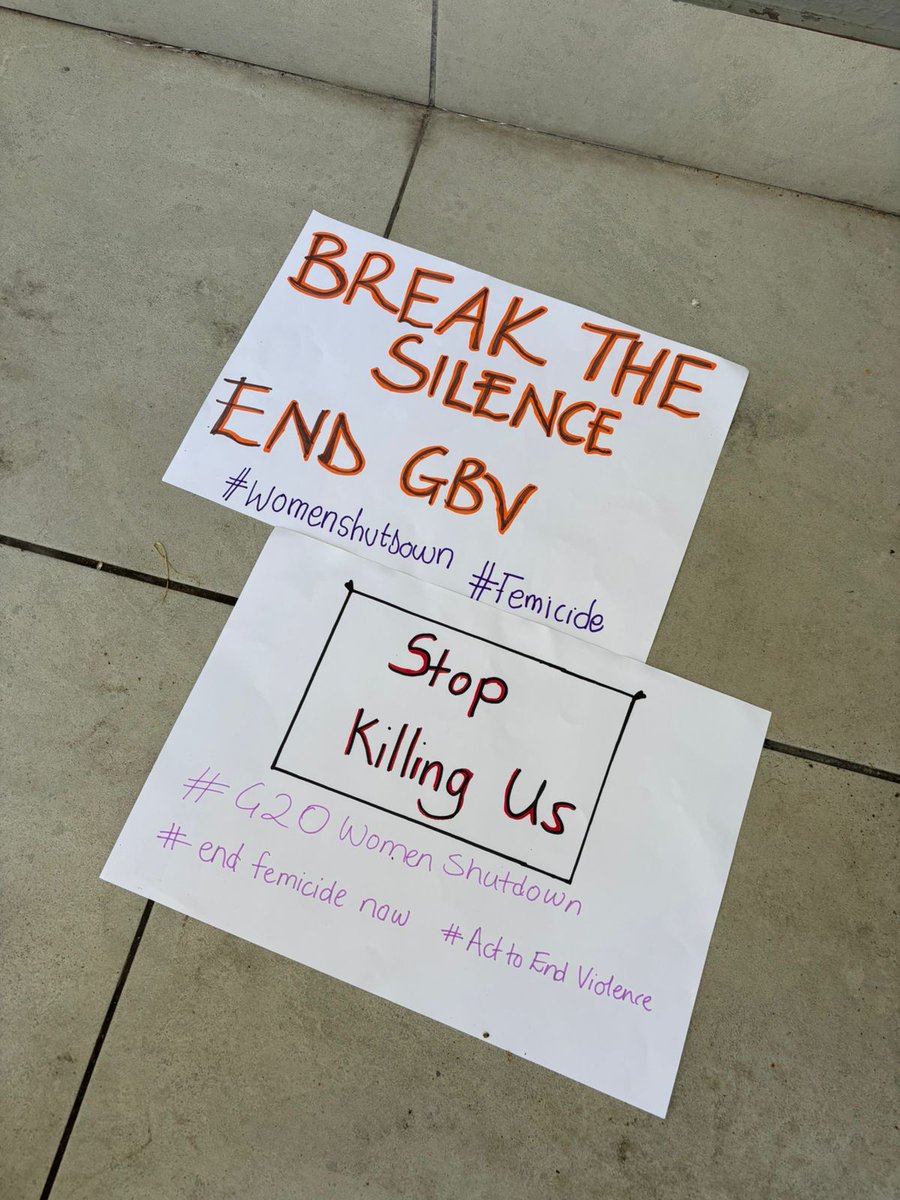 BREAK THE
SILENCE
END GBV
#Womenshutdown #Femicide
Stop
Killing Us
# G20 Women Shutdown
# end femicide now # Act to End Violence